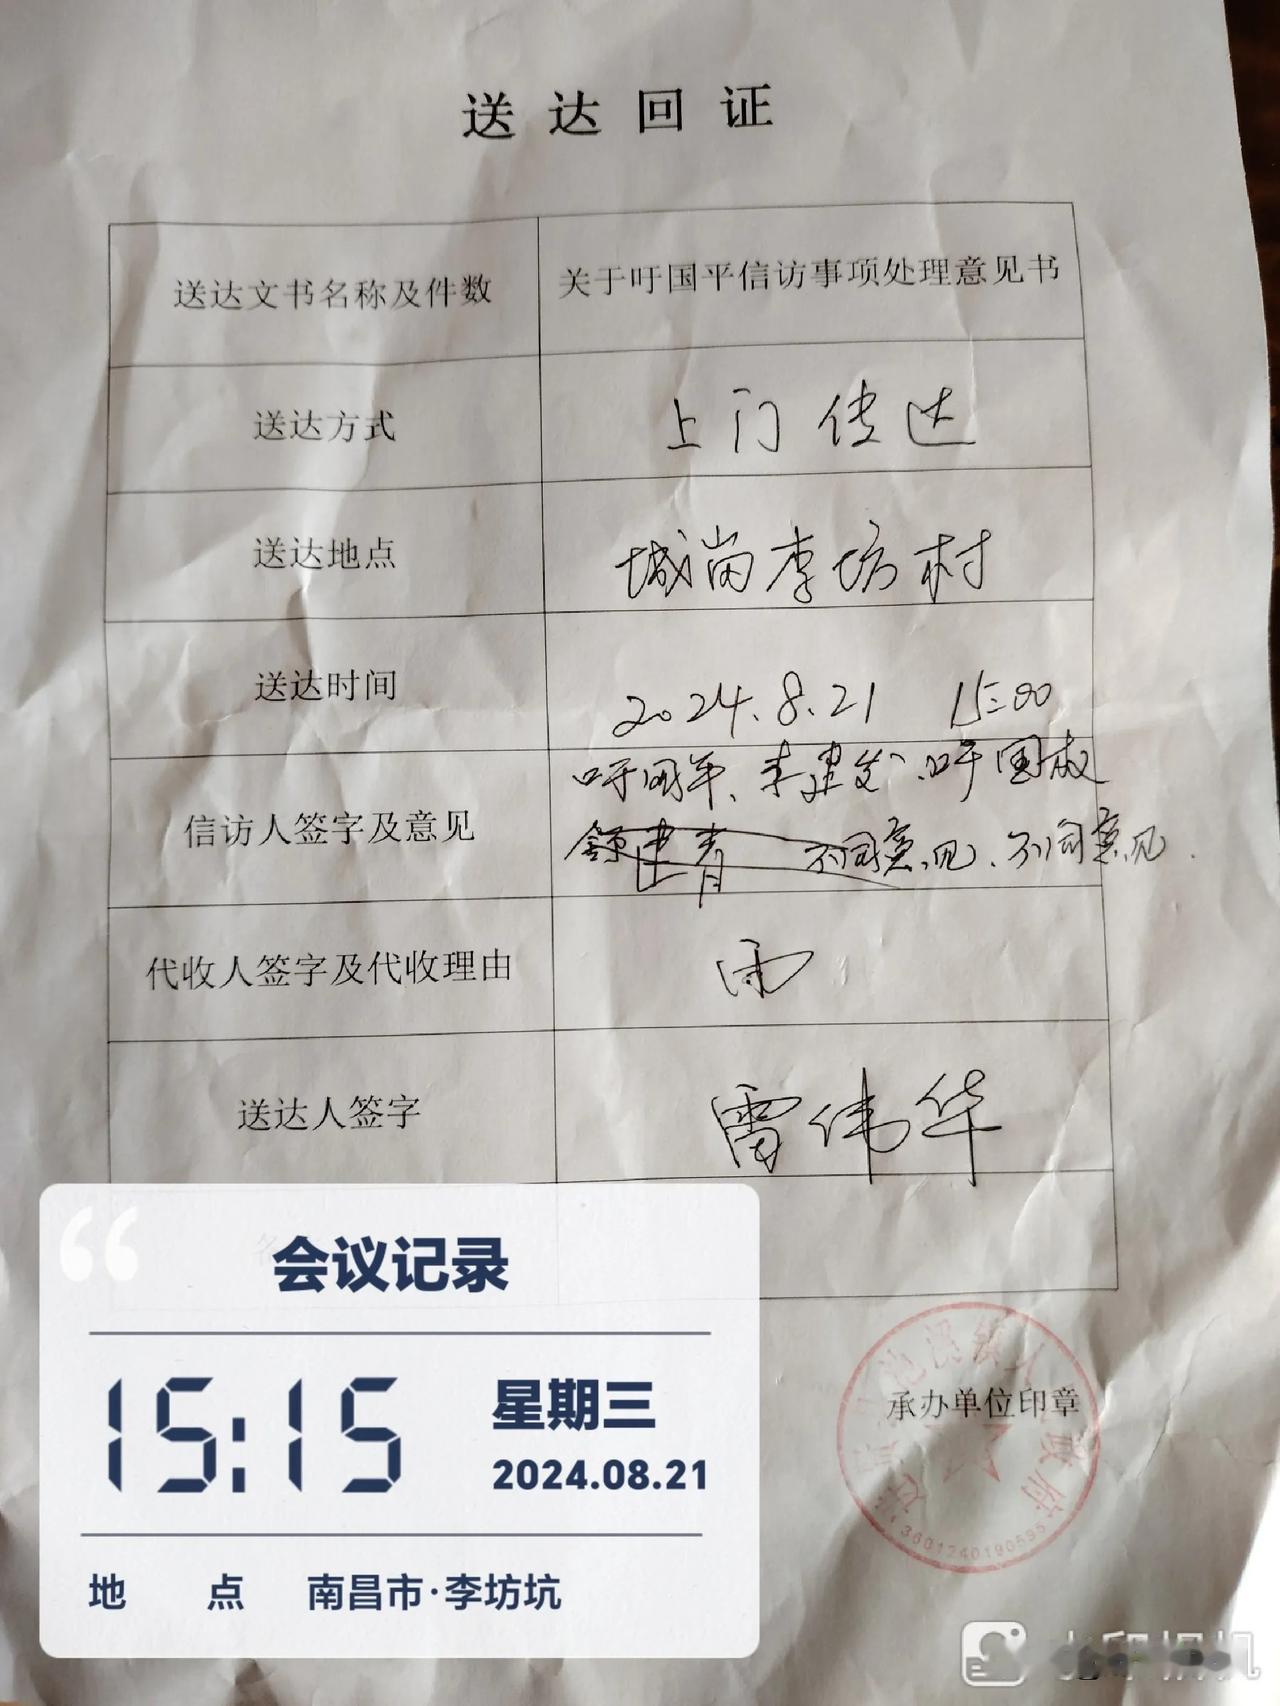 送达回证
送达文书名称及件数
关于吁国平信访事项处理意见书
送达方式
上门传达
送达地点
城岗李坊村
送达时间
2024.8.21 15:00
信访人签字及意见
吁国平、李建发、吁国
建青 不同意见、不同意见.
代收人签字及代收理由
送达人签字
雷伟华
会议记录
15:15
星期三
2024.08.21
地 点 南昌市·李坊坑
承办单位印章
池溪镇人 政府
3601240190595